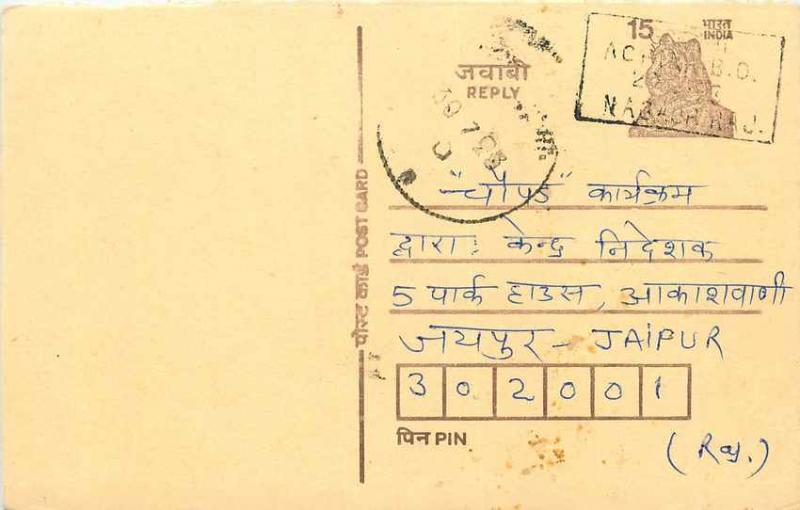 15 भारत
INDIA
जवाबी
REPLY
B.O.
पोस्ट कार्ड POST CARD
"चौपड" कार्यक्रम
द्वारा: केन्द्र निदेशक
5 पार्क हाउस, आकाशवाणी
जयपुर - JAIPUR
302001
पिन PIN
(Raj.)